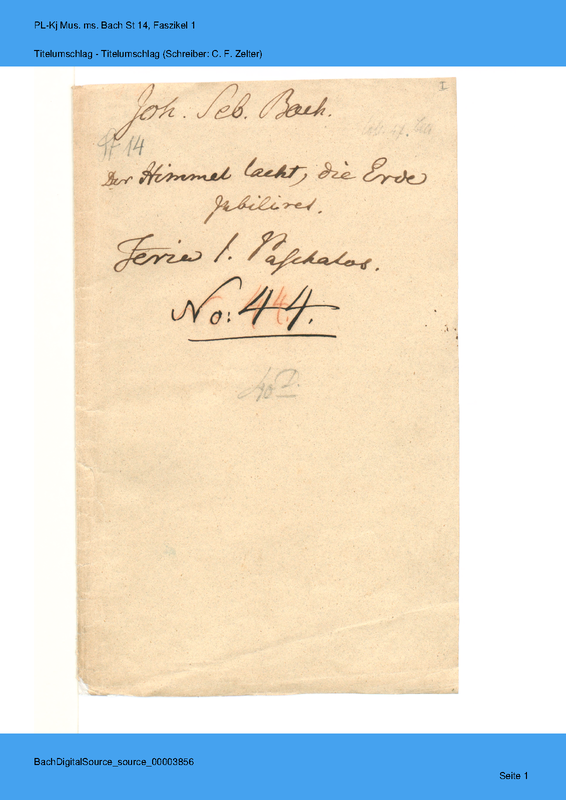 PL-Kj Mus. ms. Bach St 14, Faszikel 1
Titelumschlag - Titelumschlag (Schreiber: C. F. Zelter)
I
Joh. Seb. Bach.
St 14
Der Himmel lacht, die Erde
jubiliret.
Feria 1. Paschatos.
No: 44.
BachDigitalSource_source_00003856
Seite 1